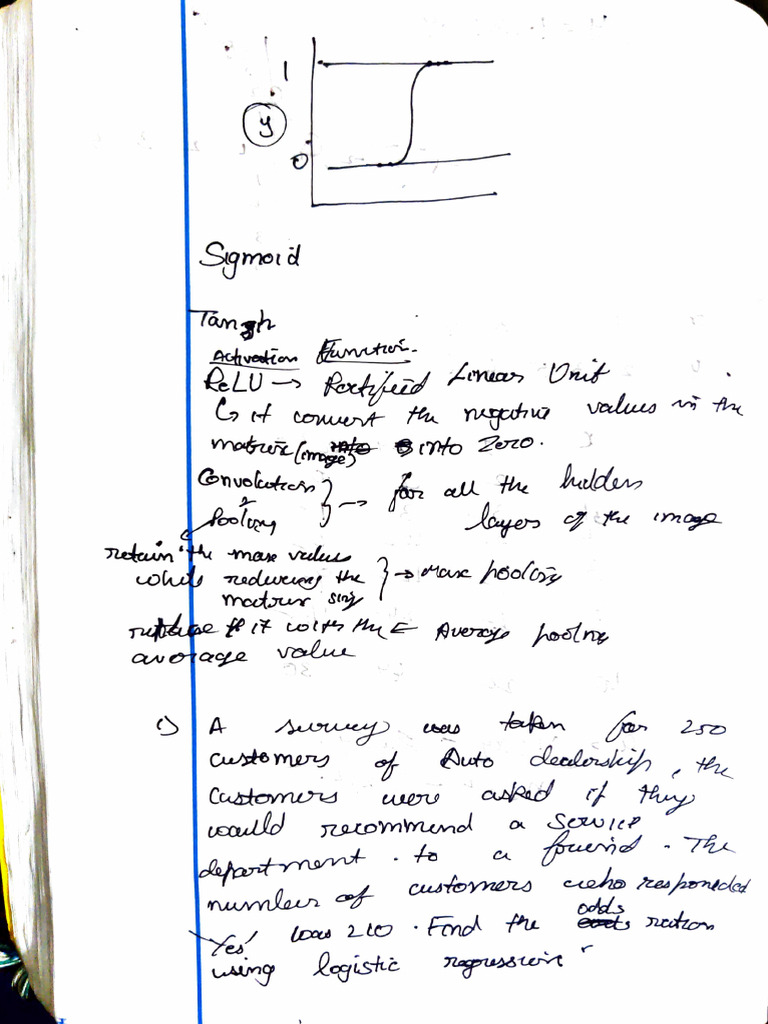 1
y
0
Sigmoid
Tanh
Activation Function.
ReLU → Rectified Linear Unit
↳ it convert the negative values in the
matrix (image) into Zero.
Convolution } → for all the hidden
& Pooling layers of the image
retain the max value
while reducing the } → Max pooling
matrix size
replace it with the ← Average pooling
average value
1) A survey was taken for 250
customers of Auto dealership, the
customers were asked if they
would recommend a Service
department. to a friend. The
number of customers who responded
'Yes' was 210. Find the odds ration
using logistic regression